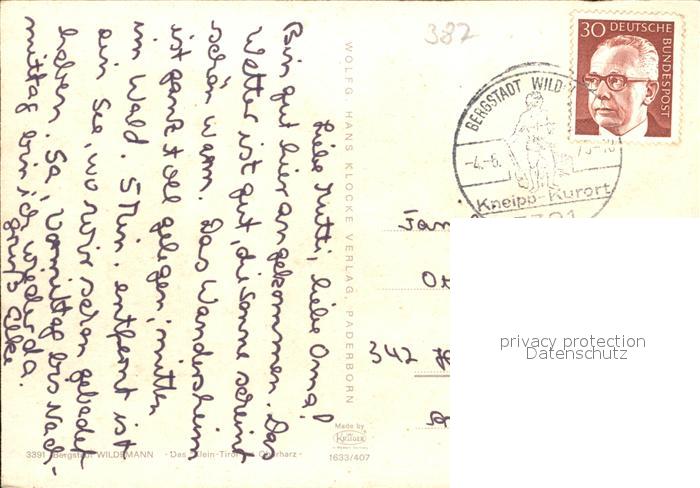 Liebe Mutti, liebe Oma!
Bin gut hier angekommen. Das
Wetter ist gut, die Sonne scheint
schön warm. Das Wandersheim
ist ganz toll gelegen, mitten
im Wald. 5 Min. entfernt ist
ein See, wo wir schon gebadet
haben. Sa, Vormittag bis Nach-
mittag bin ich wieder da.
Gruß Elke
WOLFG. HANS KLOCKE VERLAG, PADERBORN
382
30 DEUTSCHE
BUNDESPOST
BERGSTADT WILD
-4.-6.
Kneipp-Kurort
3391
Fam
342
privacy protection
Datenschutz
Made by
KRÜGER
1633/407
3391 Bergstadt WILDEMANN - Das "Klein-Tirol" im Oberharz -